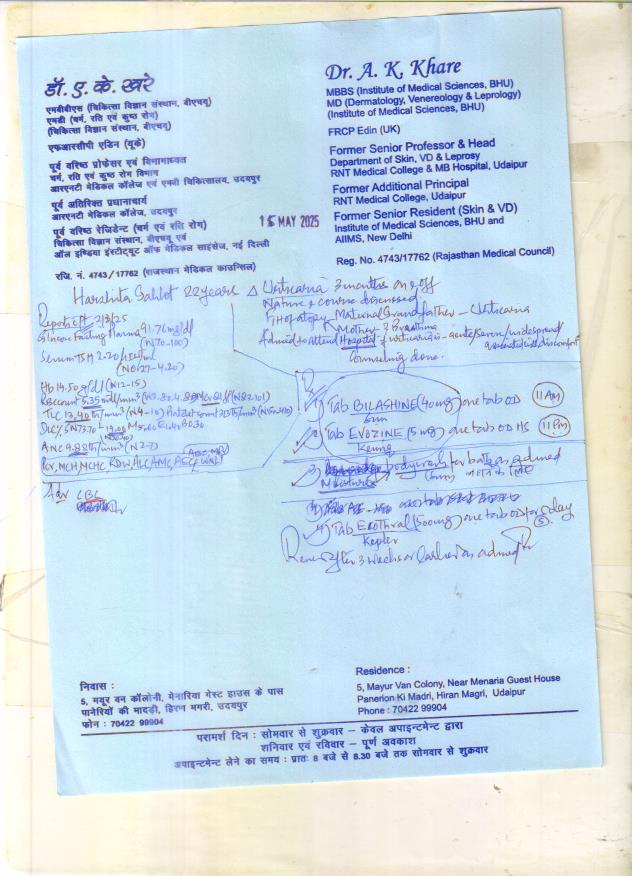 डॉ. ए. के. खरे
एमबीबीएस (चिकित्सा विज्ञान संस्थान, बीएचयू)
एमडी (चर्म, रति एवं कुष्ठ रोग)
(चिकित्सा विज्ञान संस्थान, बीएचयू)
एफआरसीपी एडिन (यूके)
पूर्व वरिष्ठ प्रोफेसर एवं विभागाध्यक्ष
चर्म, रति एवं कुष्ठ रोग विभाग
आरएनटी मेडिकल कॉलेज एवं एमबी चिकित्सालय, उदयपुर
पूर्व अतिरिक्त प्रधानाचार्य
आरएनटी मेडिकल कॉलेज, उदयपुर
पूर्व वरिष्ठ रेजिडेन्ट (चर्म एवं रति रोग)
चिकित्सा विज्ञान संस्थान, बीएचयू एवं
ऑल इण्डिया इंस्टीट्यूट ऑफ मेडिकल साइंसेज, नई दिल्ली
रजि. नं. 4743/17762 (राजस्थान मेडिकल काउन्सिल)
Dr. A. K. Khare
MBBS (Institute of Medical Sciences, BHU)
MD (Dermatology, Venereology & Leprology)
(Institute of Medical Sciences, BHU)
FRCP Edin (UK)
Former Senior Professor & Head
Department of Skin, VD & Leprosy
RNT Medical College & MB Hospital, Udaipur
Former Additional Principal
RNT Medical College, Udaipur
Former Senior Resident (Skin & VD)
Institute of Medical Sciences, BHU and
AIIMS, New Delhi
Reg. No. 4743/17762 (Rajasthan Medical Council)
15 MAY 2025
22 years Δ Urticaria 3 months on & off
Nature & course discussed
Maternal Grandfather - Urticaria
Mother
Admised to attend Hospital if urticaria is - acute/severe/widespread
Counseling done.
Glucose Fasting Plasma 91.76 mg/dl
(N 70-100)
Serum TSH 2.20
(N 0.27-4.20)
Hb 14.50 g/dl (N 12-15)
TLC 13.40 th/mm³ (N 4-10)
ANC 9.88 th/mm³ (N 2-7)
Adv CBC
1) Tab BILASHINE (40mg) one tab OD 11 AM
2) Tab EVOZINE (5mg) one tab OD HS 11 PM
3) bodywash for bath as advised
4) Tab (500mg) one tab OD for 5 day
Review after 3 weeks or earlier as advised
निवास :
5, मयूर वन कॉलोनी, मेनारिया गेस्ट हाउस के पास
पानेरियों की मादड़ी, हिरण मगरी, उदयपुर
फोन : 70422 99904
Residence :
5, Mayur Van Colony, Near Menaria Guest House
Panerion Ki Madri, Hiran Magri, Udaipur
Phone : 70422 99904
परामर्श दिन : सोमवार से शुक्रवार – केवल अपाइन्टमेन्ट द्वारा
शनिवार एवं रविवार – पूर्ण अवकाश
अपाइन्टमेन्ट लेने का समय : प्रातः 8 बजे से 8.30 बजे तक सोमवार से शुक्रवार